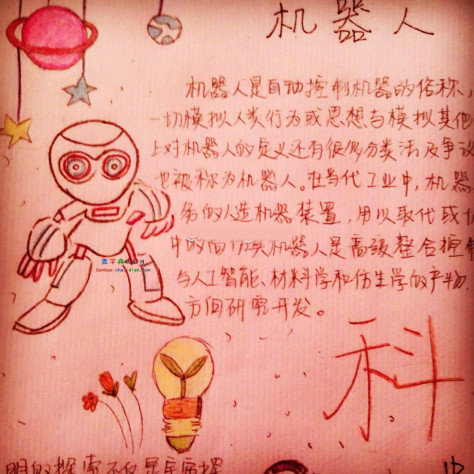 机器人
机器人是自动控制机器的俗称,
一切模拟人类行为或思想与模拟其他
上对机器人的定义还有很多分类法及争议
也被称为机器人。在当代工业中,机器
务的人造机器装置,用以取代或
中的 机器人是高级整合控
与人工智能、材料学和仿生学的产物
方向研究开发。
科
明的探索不仅是宇宙探